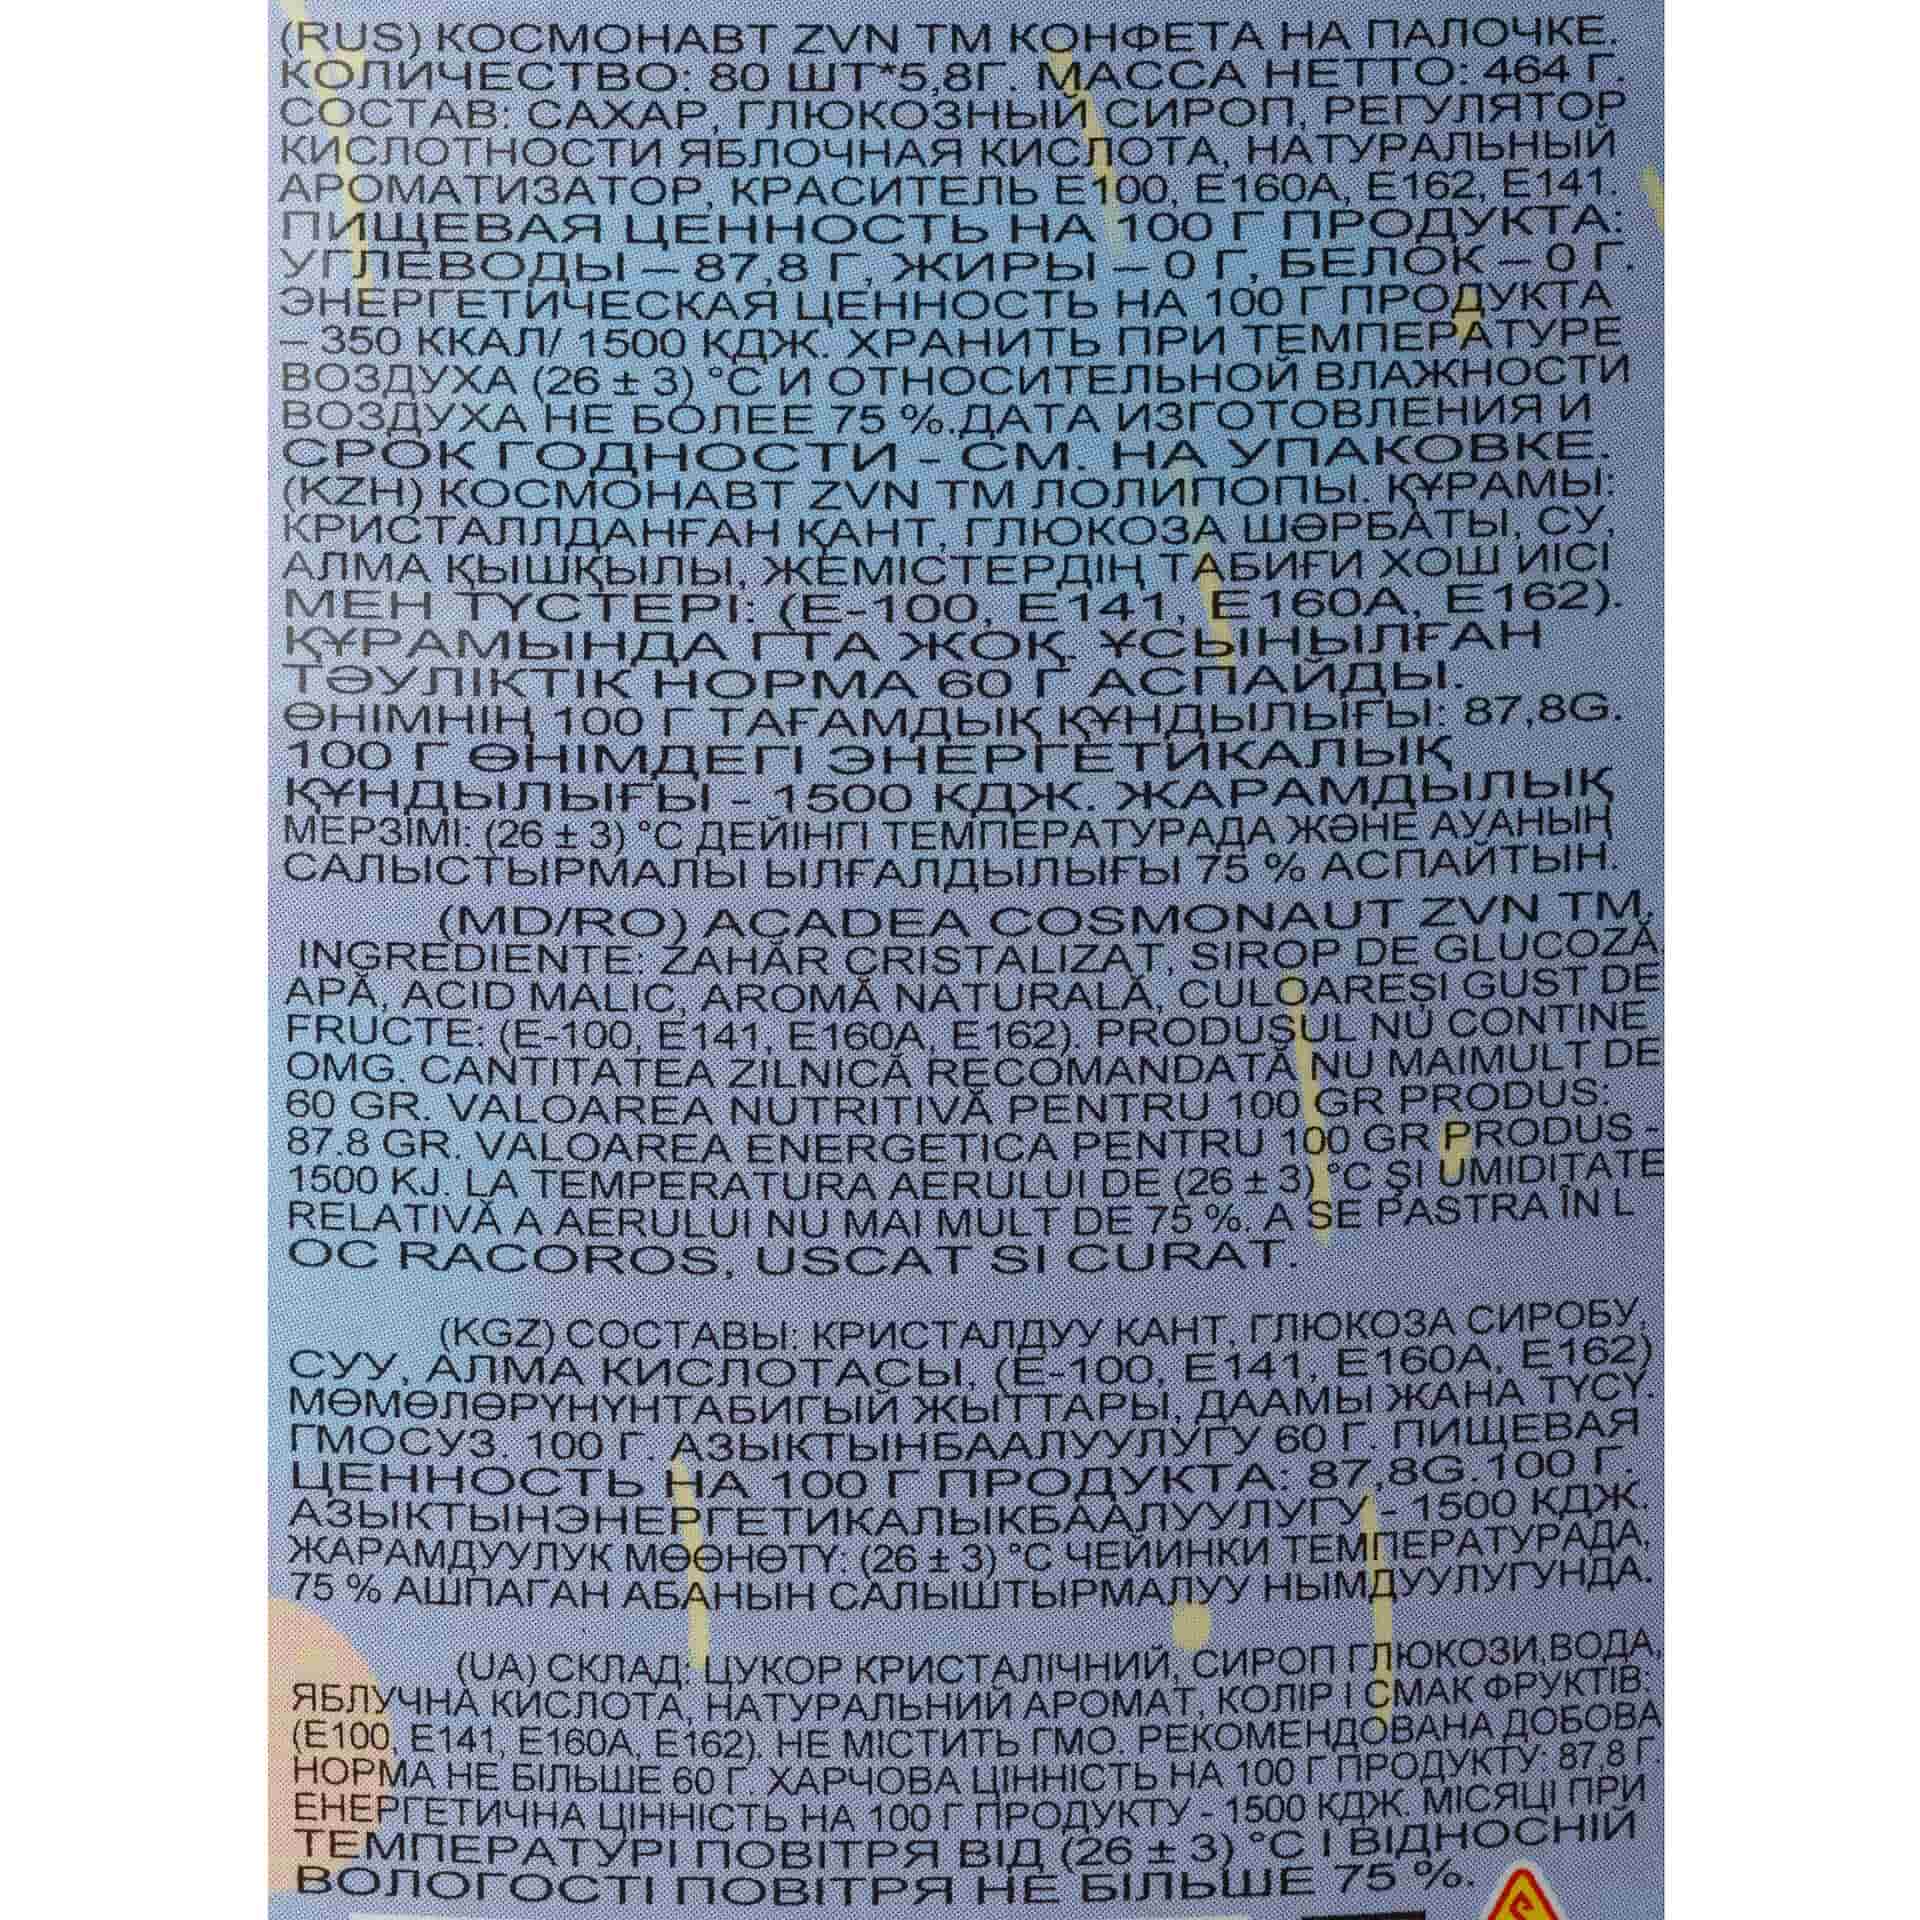 (RUS) КОСМОНАВТ ZVN TM КОНФЕТА НА ПАЛОЧКЕ.
КОЛИЧЕСТВО: 80 ШТ*5,8Г. МАССА НЕТТО: 464 Г.
СОСТАВ: САХАР, ГЛЮКОЗНЫЙ СИРОП, РЕГУЛЯТОР
КИСЛОТНОСТИ ЯБЛОЧНАЯ КИСЛОТА, НАТУРАЛЬНЫЙ
АРОМАТИЗАТОР, КРАСИТЕЛЬ Е100, Е160А, Е162, Е141.
ПИЩЕВАЯ ЦЕННОСТЬ НА 100 Г ПРОДУКТА:
УГЛЕВОДЫ – 87,8 Г, ЖИРЫ – 0 Г, БЕЛОК – 0 Г.
ЭНЕРГЕТИЧЕСКАЯ ЦЕННОСТЬ НА 100 Г ПРОДУКТА
– 350 ККАЛ/ 1500 КДЖ. ХРАНИТЬ ПРИ ТЕМПЕРАТУРЕ
ВОЗДУХА (26 ± 3) °С И ОТНОСИТЕЛЬНОЙ ВЛАЖНОСТИ
ВОЗДУХА НЕ БОЛЕЕ 75 %.ДАТА ИЗГОТОВЛЕНИЯ И
СРОК ГОДНОСТИ - СМ. НА УПАКОВКЕ.
(KZH) КОСМОНАВТ ZVN TM ЛОЛИПОПЫ. ҚҰРАМЫ:
КРИСТАЛЛДАНҒАН ҚАНТ, ГЛЮКОЗА ШӘРБАТЫ, СУ,
АЛМА ҚЫШҚЫЛЫ, ЖЕМІСТЕРДІҢ ТАБИҒИ ХОШ ИІСІ
МЕН ТҮСТЕРІ: (Е-100, Е141, Е160А, Е162).
ҚҰРАМЫНДА ГТА ЖОҚ. ҰСЫНЫЛҒАН
ТӘУЛІКТІК НОРМА 60 Г АСПАЙДЫ.
ӨНІМНІҢ 100 Г ТАҒАМДЫҚ ҚҰНДЫЛЫҒЫ: 87,8G.
100 Г ӨНІМДЕГІ ЭНЕРГЕТИКАЛЫҚ
ҚҰНДЫЛЫҒЫ - 1500 КДЖ. ЖАРАМДЫЛЫҚ
МЕРЗІМІ: (26 ± 3) °С ДЕЙІНГІ ТЕМПЕРАТУРАДА ЖӘНЕ АУАНЫҢ
САЛЫСТЫРМАЛЫ ЫЛҒАЛДЫЛЫҒЫ 75 % АСПАЙТЫН.
(MD/RO) ACADEA COSMONAUT ZVN TM,
INGREDIENTE: ZAHĂR CRISTALIZAT, SIROP DE GLUCOZĂ,
APĂ, ACID MALIC, AROMĂ NATURALĂ, CULOAREȘI GUST DE
FRUCTE: (E-100, E141, E160A, E162). PRODUSUL NU CONTINE
OMG. CANTITATEA ZILNICĂ RECOMANDATĂ NU MAIMULT DE
60 GR. VALOAREA NUTRITIVĂ PENTRU 100 GR PRODUS:
87.8 GR. VALOAREA ENERGETICA PENTRU 100 GR PRODUS -
1500 KJ. LA TEMPERATURA AERULUI DE (26 ± 3) °C ȘI UMIDITATE
RELATIVĂ A AERULUI NU MAI MULT DE 75 %. A SE PASTRA ÎN L
OC RACOROS, USCAT SI CURAT.
(KGZ) СОСТАВЫ: КРИСТАЛДУУ КАНТ, ГЛЮКОЗА СИРОБУ,
СУУ, АЛМА КИСЛОТАСЫ, (Е-100, Е141, Е160А, Е162)
МӨМӨЛӨРҮНҮНТАБИГЫЙ ЖЫТТАРЫ, ДААМЫ ЖАНА ТҮСҮ.
ГМОСУЗ. 100 Г. АЗЫКТЫНБААЛУУЛУГУ 60 Г. ПИЩЕВАЯ
ЦЕННОСТЬ НА 100 Г ПРОДУКТА: 87,8G.100 Г.
АЗЫКТЫНЭНЕРГЕТИКАЛЫКБААЛУУЛУГУ - 1500 КДЖ.
ЖАРАМДУУЛУК МӨӨНӨТҮ: (26 ± 3) °С ЧЕЙИНКИ ТЕМПЕРАТУРАДА,
75 % АШПАГАН АБАНЫН САЛЫШТЫРМАЛУУ НЫМДУУЛУГУНДА.
(UA) СКЛАД: ЦУКОР КРИСТАЛІЧНИЙ, СИРОП ГЛЮКОЗИ,ВОДА,
ЯБЛУЧНА КИСЛОТА, НАТУРАЛЬНИЙ АРОМАТ, КОЛІР І СМАК ФРУКТІВ:
(Е100, Е141, Е160А, Е162). НЕ МІСТИТЬ ГМО. РЕКОМЕНДОВАНА ДОБОВА
НОРМА НЕ БІЛЬШЕ 60 Г. ХАРЧОВА ЦІННІСТЬ НА 100 Г ПРОДУКТУ: 87,8 Г.
ЕНЕРГЕТИЧНА ЦІННІСТЬ НА 100 Г ПРОДУКТУ - 1500 КДЖ. МІСЯЦІ ПРИ
ТЕМПЕРАТУРІ ПОВІТРЯ ВІД (26 ± 3) °С І ВІДНОСНІЙ
ВОЛОГОСТІ ПОВІТРЯ НЕ БІЛЬШЕ 75 %.